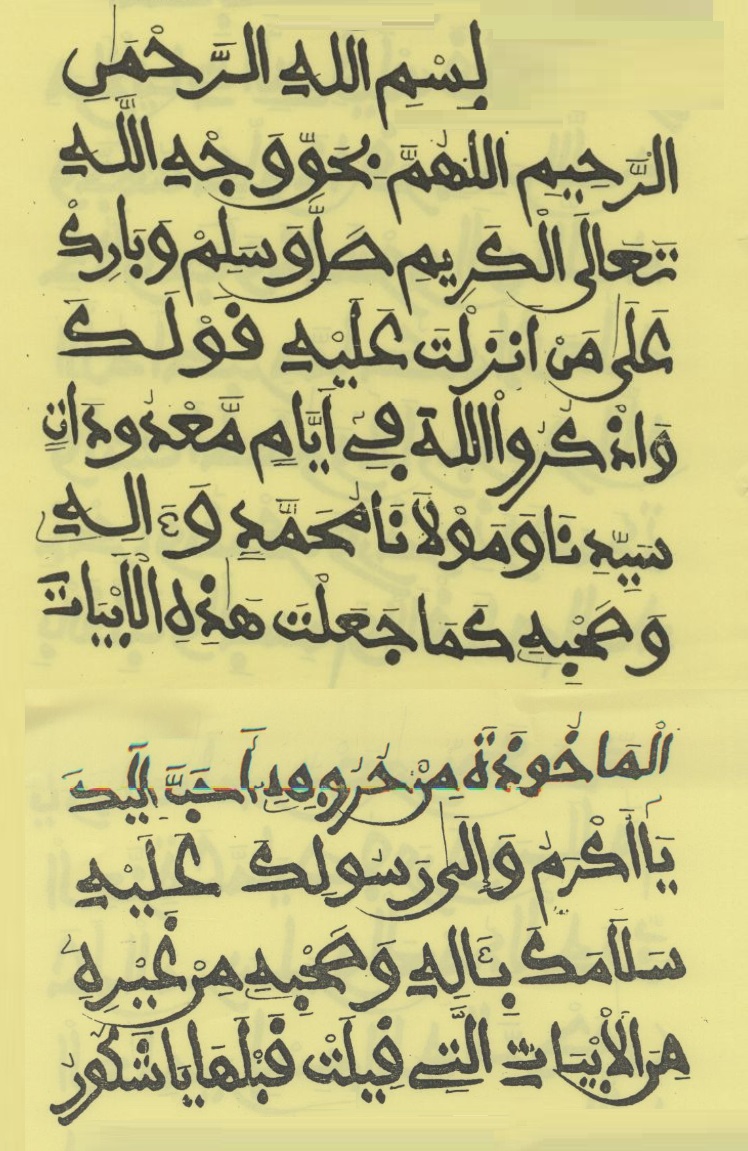 بِسْمِ اللهِ الرَّحْمَٰنِ
الرَّحِيمِ اللَّهُمَّ بِحَقِّ وَجْهِ اللَّهِ
تَعَالَى الْكَرِيمِ صَلِّ وَسَلِّمْ وَبَارِكْ
عَلَى مَنْ انزَلْتَ عَلَيْهِ قَوْلَكَ
وَاذْكُرُواْ اللَّهَ فِي أَيَّامٍ مَّعْدُودَاتٍ
سَيِّدِنَا وَمَوْلَانَا مُحَمَّدٍ وَءَالِهِ
وَصَحْبِهِ كَمَا جَعَلْتَ هَٰذِهِ الْأَبْيَاتَ
الْمَاخُوذَةَ مِنْ حُرُوفِهِ أَحَبَّ إِلَيْكَ
يَا أَكْرَمُ وَإِلَى رَسُولِكَ عَلَيْهِ
سَلَامُكَ بِئَالِهِ وَصَحْبِهِ مِنْ غَيْرِهِ
مِنَ الْأَبْيَاتِ الَّتِي قِيلَتْ قَبْلَهَا يَا شَكُورُ